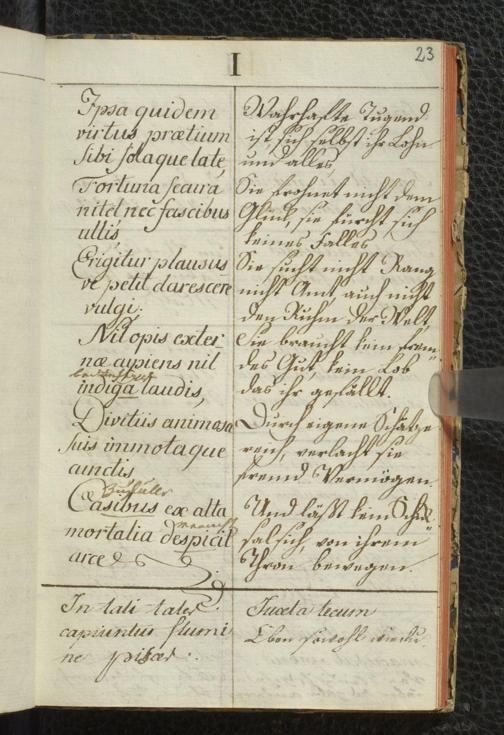 I
23
Ipsa quidem
virtus prætium
sibi solaque late,
Fortuna secura
nitet nec fascibus
ullis,
Erigitur plausus
ve petit clarescere
vulgi:
Nil opis exter
næ cupiens nil
indiga laudis,
Divitiis animosa
suis immotaque
cunctis
Zufäller
Casibus ex alta
mortalia despicit
arce
In tali tales
capiuntur flumi
ne pisces.
Wahrhafte Tugend
ist sich selbst ihr Lohn
und alles,
Sie frohnet nicht dem
Glück, sie fürcht sich
keines Falles
Sie sucht nicht Rang
nicht Amt auch nicht
den Ruhm der Welt,
Sie braucht kein frem-
des Gut, kein Lob
das ihr gefällt.
Durch eigene Schätze
reich, verlacht sie
fremd Vermögen.
Und läßt kein Schick
sal sich, von ihrem
Thron bewegen.
Juxta tecum
Eben sowohl wie du.